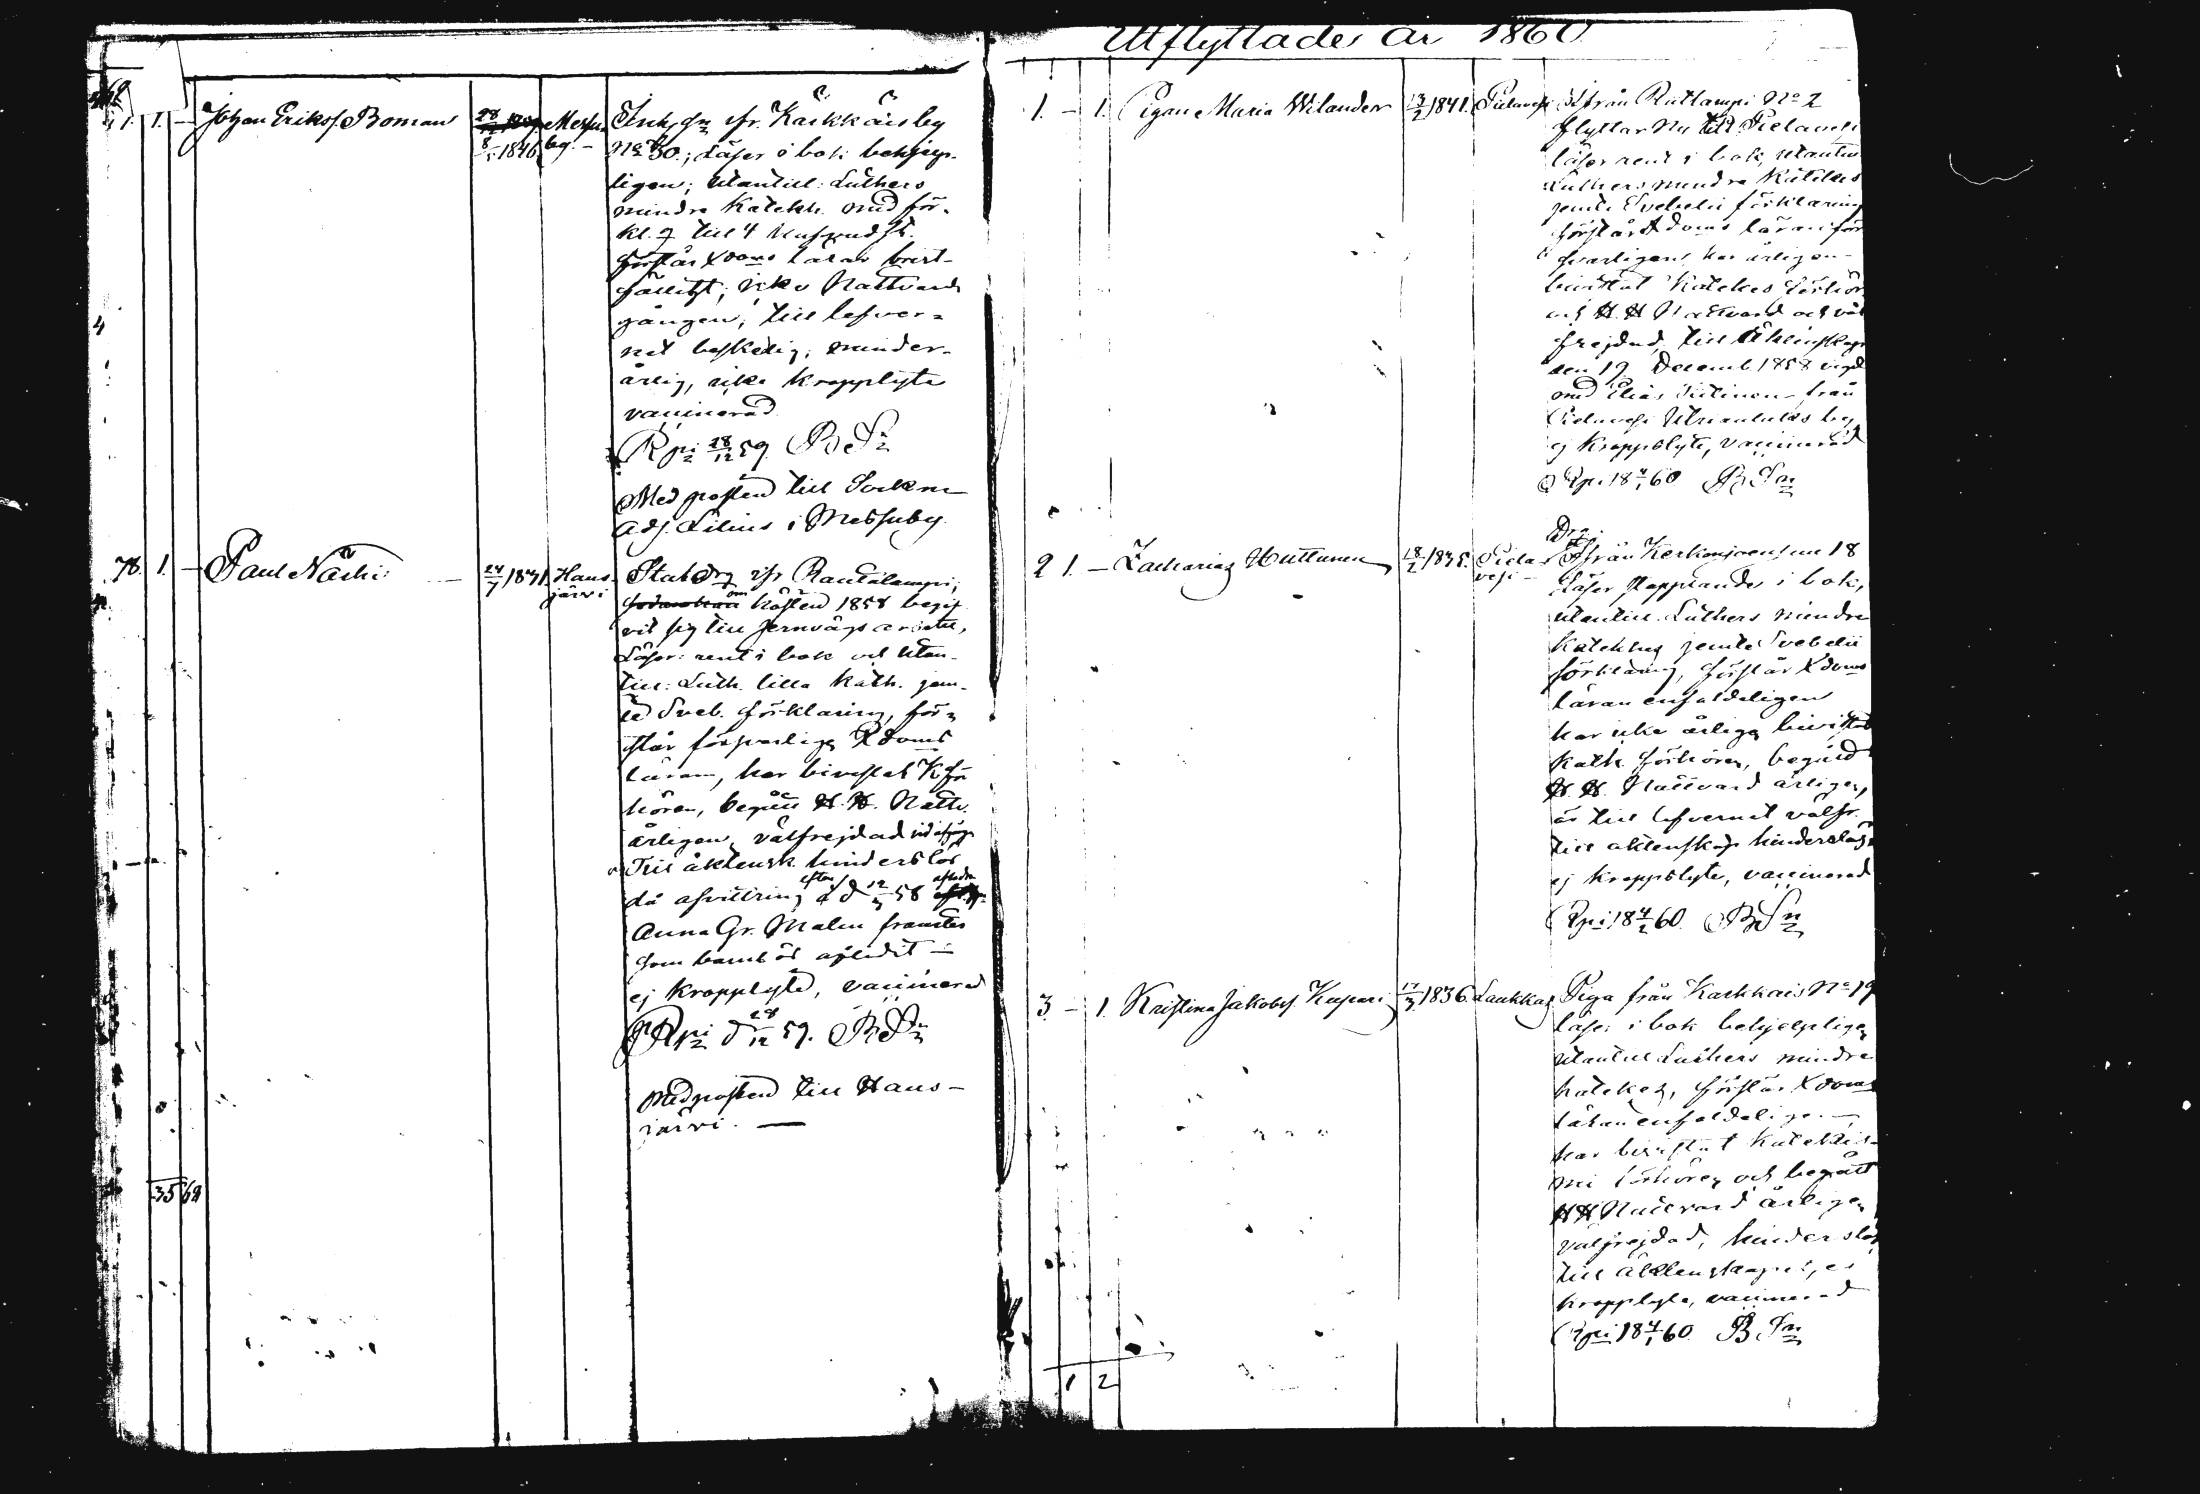 1. – Johan Eriksf. Boman
8/5 1846
Messu
by. –
Inh. Sn ifr. Kärkkäis by
No 30.; Läser i bok behjelp-
ligen; utantill: Luthers
mindre Katekh. med för-
kl. g till 4 Hufvud St.
förstår Xdoms läran brist-
fälligt; icke Nattvards
gången; till lefver-
net beskedlig, minder-
årig, icke kropplyte
vaccinerad
Rpi 28/12 59 B Sn
Med posten till Sockne
adj. Lilius i Messuby.
78. 1. – Paul Näski –
24/7 1831
Haus-
järvi
Statdrg ifr Rautalampi;
om hösten 1858 begif
vit sig till Jernvägs arbetet,
Läser: rent i bok och utan-
till: Luth. lilla Kath. jem-
te Sveb. förklaring, för-
står försvarlig Xdoms
läran, har bivistat K för
hören, begått H. H. Nattv.
årligen, välfrejdad
Till äktensk. hinderslös
då afvittring efter d 12/3 58 aflidna
Anna Gr. Malm
som barnlös aflidit –
ej kropplyte, vaccinerad
Rpi d 28/12 59. B Sn
Med posten till Haus-
järvi. –
35 69
Utflyttades år 1860
1. – 1. Pigan Maria Wilander
13/2 1841.
Pielavesi
ifrån Rutlampi No 2
flyttar nu till Pielavesi
läser rent i bok, utantill
Luthers mindre Katekes
jemte Svebelii förklaring
förstår Xdoms läran för
svarligen, har årligen
bivistat Katekes förhör
och H. H. Nattvard och väl
frejdad, till Äktenskap
den 19 Decemb 1858 vigd
med Elias från
Pielavesi by
ej kroppslyte, vaccinerad
Rpi 18 4/1 60 B Sn
2 1. – Zacharias Huttunen
18/2 1835.
Piela-
vesi –
Drg
Ifrån Kerkonjoensuu 18
Läser stapplande i bok,
utantill Luthers mindre
Katekes jemte Svebelii
förklaring, förstår Xdoms
läran enfaldeligen
har icke årligen bivistat
Kath. förhören, begått
H. H. Nattvard årligen,
är till lefvernet välfr.
till äktenskap hinderslös,
ej kroppslyte, vaccinerad
Rpi 18 4/1 60. B Sn
3 – 1. Kristina Jakobsf. Kupari
17/3 1836.
Laukkas
Piga från Karkkais No 19
läser i bok behjelpligen
utantill Luthers mindre
katekes, förstår Xdoms
läran enfaldeligen –
har bivistat Katekis-
mi förhören och begått
H H Nattvard årligen
välfrejdad, hinderslös
till Äktenskapet, ej
kropplyte, vaccinerad
Rpi 18 4/1 60 B Sn
1 2